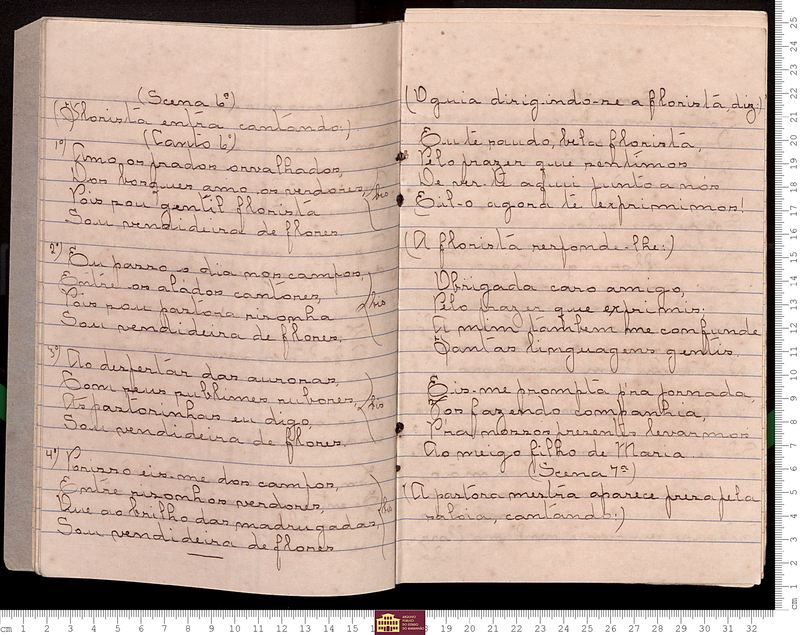 (Scena 6ª)
(Florista entra cantando:)
(Canto 6º)
1º) Amo os prados orvalhados,
Dos bosques amo os verdores,
Pois sou gentil florista
Sou vendideira de flores.
bis
2º) Eu passo o dia nos campos,
Entre os alados cantores,
Pois sou pastora risonha
Sou vendideira de flores.
bis
3º) Ao despertar das auroras,
Com seus sublimes rubores,
As pastorinhas eu digo,
Sou vendideira de flores.
bis
4º) Porisso eis-me dos campos,
Entre risonhos verdores,
Que ao brilho das madrugadas,
Sou vendideira de flores
bis
(O guia dirigindo-se a florista, diz:)
Eu te saudo, bela florista,
Pelo prazer que sentimos
De ver-te aqui junto a nós
Eil-o agora te exprimimos!
(A florista responde-lhe:)
Obrigada caro amigo,
Pelo prazer que exprimis;
A mim tambem me confunde
Tantas linguagens gentis,
Eis-me prompta p'ra jornada,
Vos fazendo companhia,
Pra nossos presentes levarmos
Ao meigo filho de Maria.
(Scena 7ª)
(A pastora mestra aparece presa pela
saloia, cantando:)
ARQUIVO
PÚBLICO
DO ESTADO
DO MARANHÃO